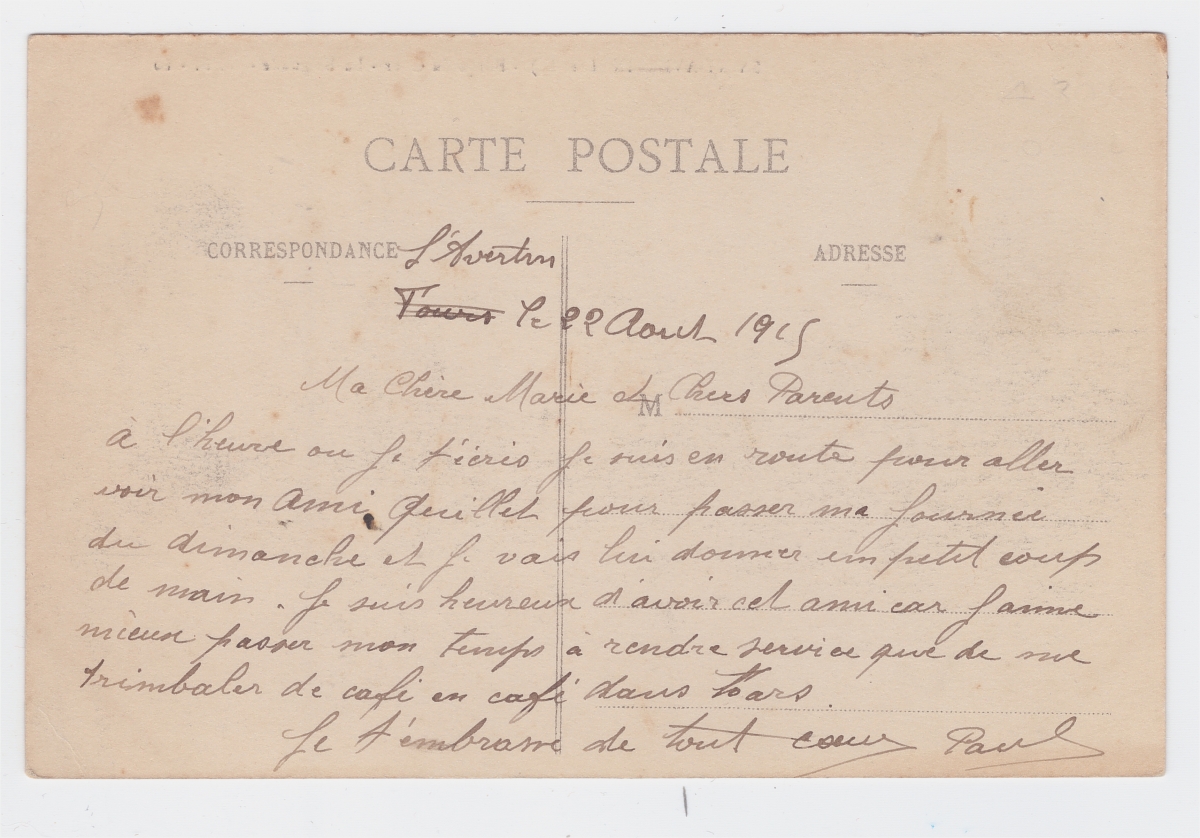 CARTE POSTALE
CORRESPONDANCE
ADRESSE
S'Avertin
Tours le 22 Aout 1915
Ma Chère Marie et Chers Parents
M
à l'heure ou Je t'écris Je suis en route pour aller
voir mon Ami Quillet pour passer ma Journée
du dimanche et Je vais lui donner un petit coup
de main. Je suis heureux d'avoir cet ami car J'aime
mieux passer mon temps à rendre service que de me
trimbaler de café en café dans
Je t'embrasse de tout coeur Paul